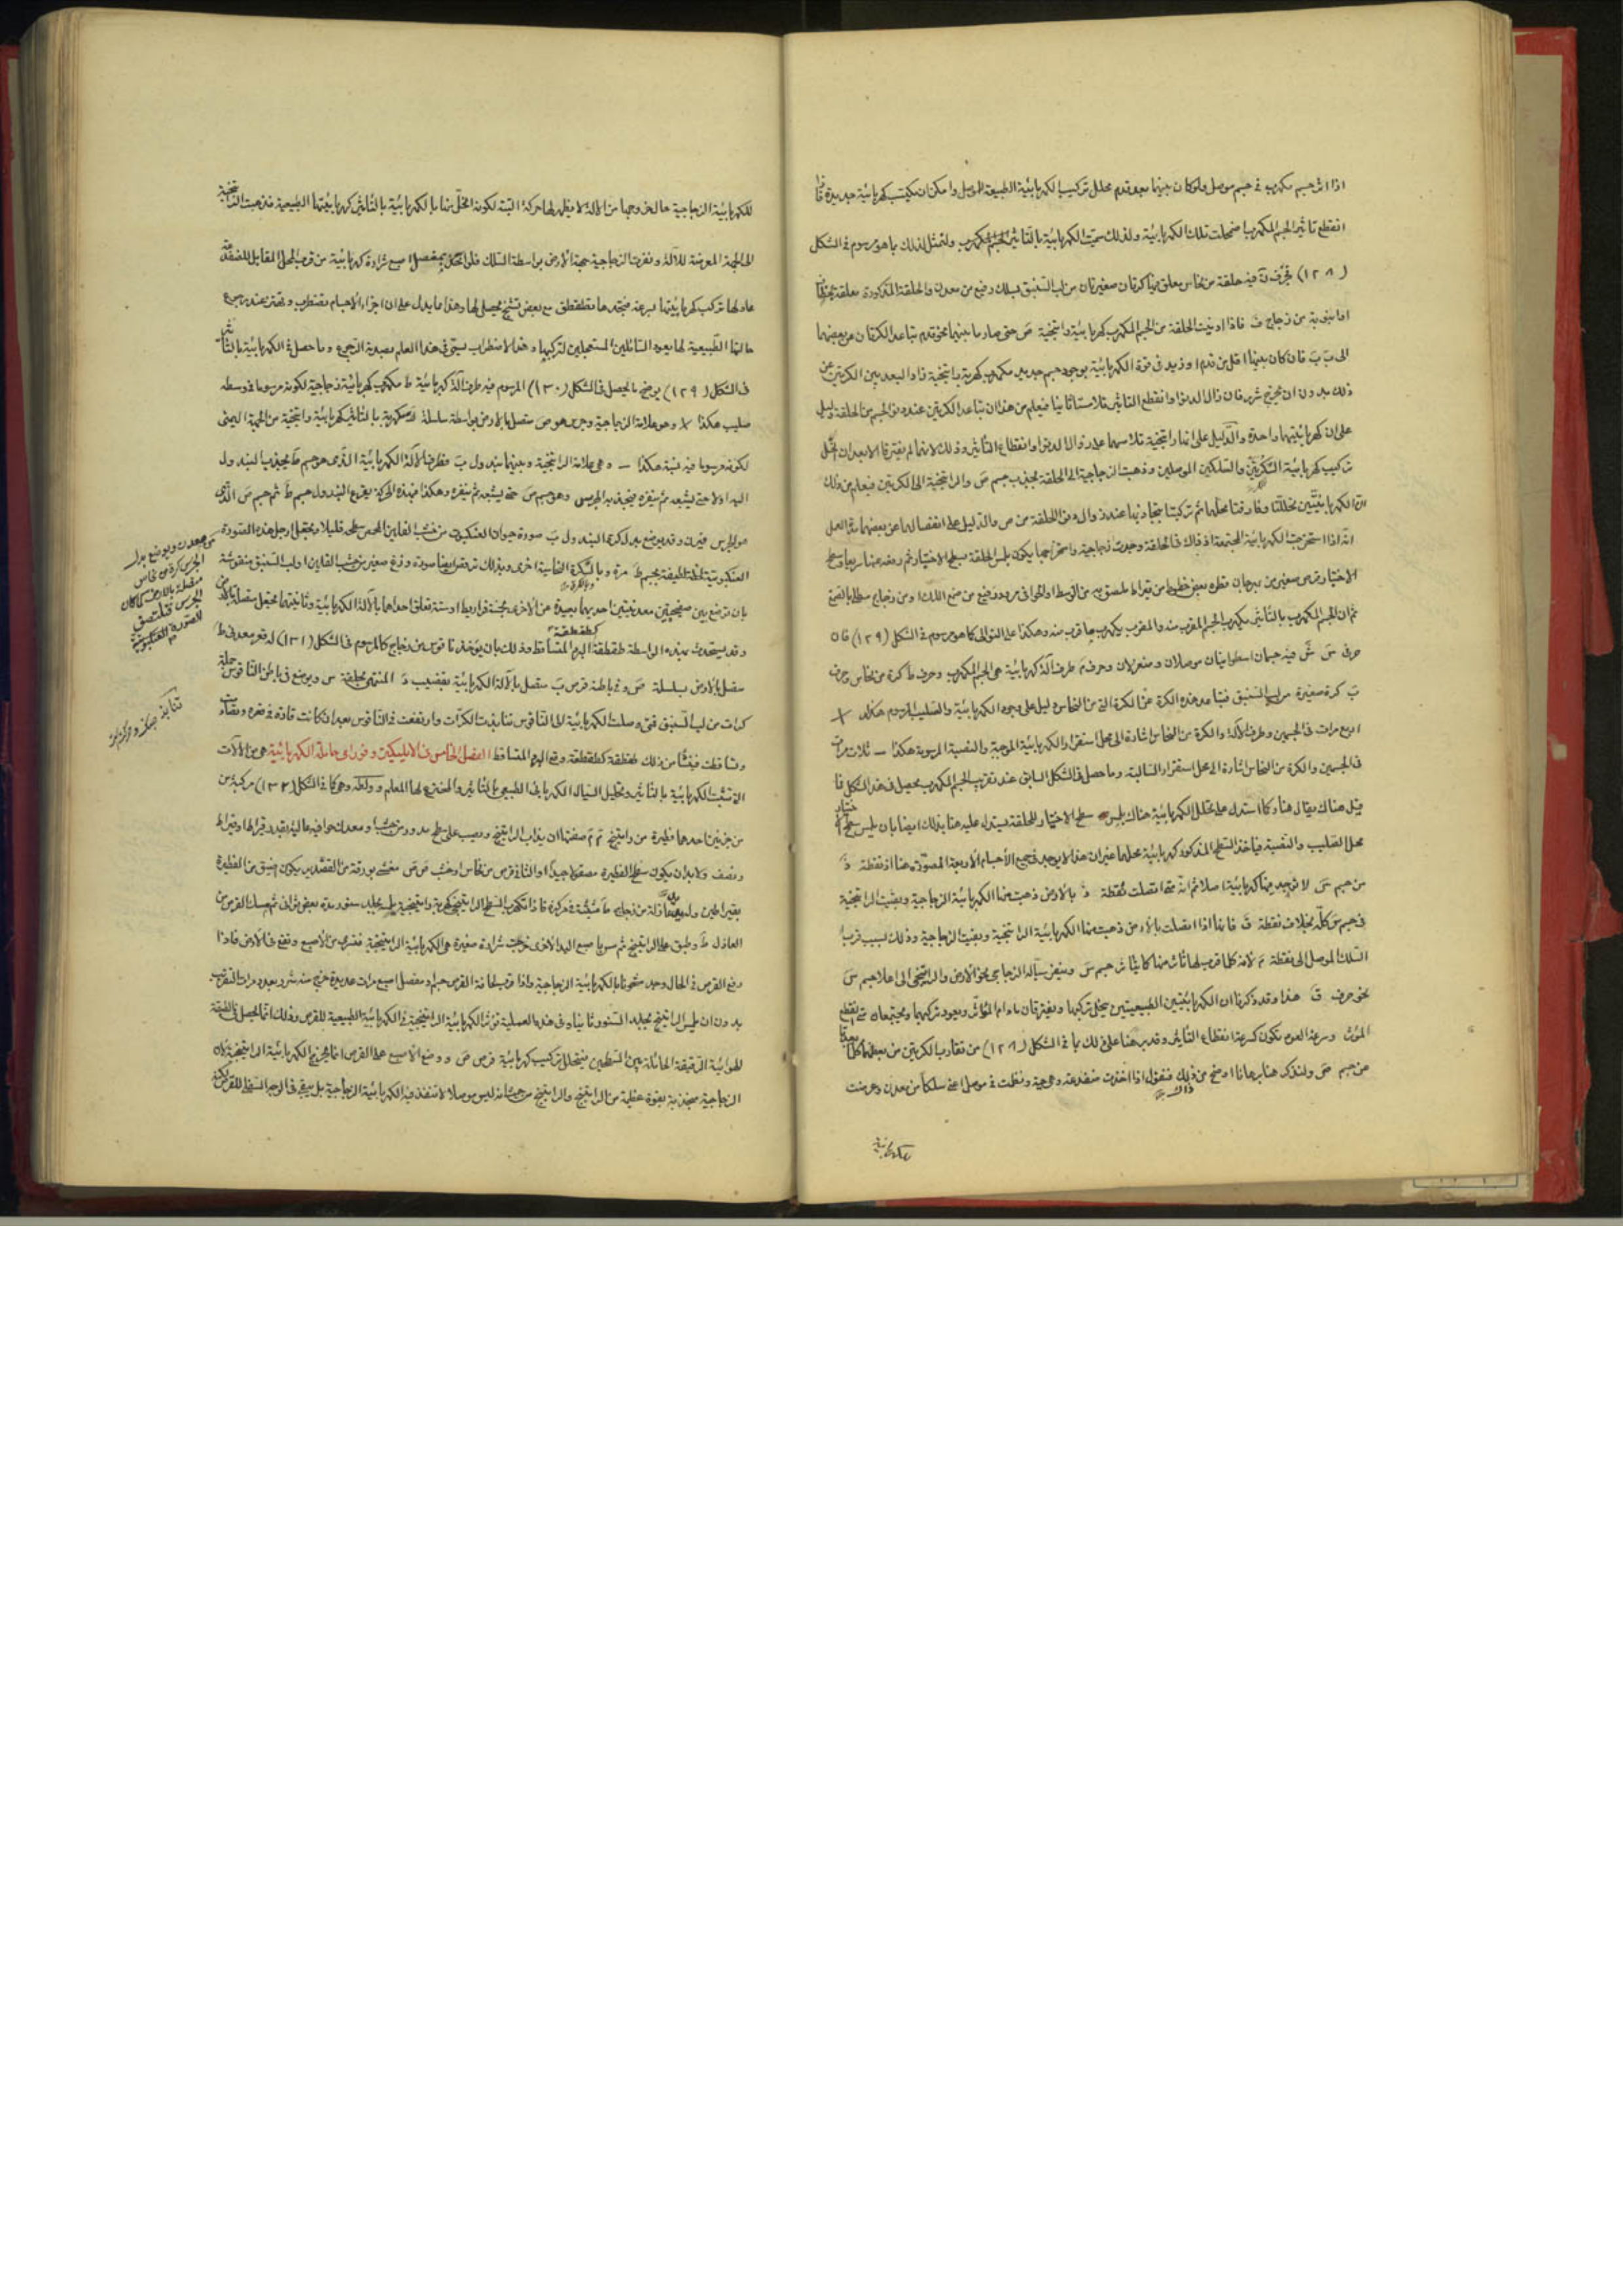 اذا اثر جسم مكهرب فى جسم موصل ولو كان بينهما بعض قدم تحلل تركيب الكهربائية الطبيعية للموصل وامكن ان يكتسب كهربائية جديدة فاذا
انقطع تاثير الجسم المكهرب اضمحلت تلك الكهربائية ولذلك سميت الكهربائية بالتاثير الجسم المكهرب ولنمثل لذلك بما هو مرسوم فى الشكل
(١٢٨) فحرف فيه حلقة من نحاس يعلق بها كرتان صغيرتان من لب السنبق بسلك رفيع من معدن والحلقة المذكورة معلقة
من زجاج ف فاذا ادنيت الحلقة من الجسم المكهرب كهربائية راتنجية ص حتى صار ما بينهما نحو قدم تباعد الكرتان عن بعضهما
الى ب ب فان كان بينهما اقل من قدم او زيد فى قوة الكهربائية بوجود جسم جديد مكهرب كهربة راتنجية زاد البعد بين الكرتين من
ذلك بدون ان يخرج شرر فان زال الدنو او انقطع التاثير تلامستا ثانيا فيعلم من هذا ان تباعد الكرتين عند دنو الجسم من الحلقة دليل
على ان كهربائيتهما واحدة والدليل على انها راتنجية تلامسهما عند زوال الدنو او انقطاع التاثير وذلك لانهما لم يفترقا الا بعد ان تحلل
تركيب كهربائية الكرتين والسلكين الموصلين وذهبت الزجاجية الى الحلقة بجذب جسم ص والراتنجية الى الكرتين فيعلم من ذلك
ان الكهربائيتين تحللتا وفارقتا محلهما ثم تركبتا بتجاذبهما عند زوال دنو الحلقة من ص والدليل على انفصالهما عن بعضهما مدة العمل
انه اذا استخرجت الكهربائية المجتمعة اذ ذاك فى الحلقة وجدت زجاجية واستخراجها يكون بلمس الحلقة بسطح الاختبار ثم رفعه عنها سريعا وسطح
الاختبار قرص صغير من بهرجان قطره بعض خطوط من قيراط ملصق به من الوسط او الحوافى مرود رفيع من صمغ اللك او من زجاج مطلى بالصمغ
ثم ان الجسم المكهرب بالتاثير يكهرب الجسم المقرب منه والمقرب يكهرب ما قرب منه وهكذا على التوالى كما هو مرسوم فى الشكل (١٢٩) فان
حرفى س ش فيه جسمان اسطوانيان موصلان ومنعزلان وحرف م طرف آلة كهربائية هى الجسم المكهرب وحرف ط كرة من نحاس وحرف
ب كرة صغيرة من لب السنبق فتباعد هذه الكرة عن الكرة التى من النحاس دليل على وجود الكهربائية والصليب المرسوم هكذا +
اربع مرات فى الجسمين وطرف الآلة والكرة من النحاس اشارة الى محل استقرار الكهربائية الموجبة والنصبة المرسومة هكذا – ثلاث مرات
فى الجسمين والكرة من النحاس اشارة الى محل استقرار السالبة وما حصل فى الشكل السابق عند تقريب الجسم المكهرب يحصل فى هذا الشكل فما
قيل هناك يقال هنا وكما استدل على تحلل الكهربائية هناك بلمس سطح الاختبار للحلقة يستدل عليه هنا بذلك ايضا بان يلمس سطح الاختبار
محل الصليب والنصبة فياخذ السطح المذكور كهربائية محلهما غير ان هذا لا يوجد فى جميع الاجسام الاربعة المصورة هنا اذ نقطة
من جسم س لا توجد فيها كهربائية اصلا ثم انه متى اتصلت نقطة بالارض ذهبت منها الكهربائية الزجاجية وبقيت الراتنجية
فى جسم س كله بخلاف نقطة ق فانها اذا اتصلت بالارض ذهبت منها الكهربائية الراتنجية وبقيت الزجاجية وذلك بسبب قرب
السلك الموصل الى نقطة م لانه كلما قرب لها تاثر منها كما يتاثر جسم س وينفر سياله الزجاجى نحو الارض والراتنجى الى اعلا جسم س
نحو حرف ق هذا وقد ذكرنا ان الكهربائيتين الطبيعيتين يتحلل تركيبهما ويفترقان ما دام المؤثر ويعود تركيبهما ويجتمعان متى انقطع
المؤثر وسرعة العود تكون كسرعة انقطاع التاثير وقد برهنا على ذلك بما فى الشكل (١٢٨) من تقارب الكرتين من بعضهما كلما بعدتا
من جسم ص ولنذكر هنا برهانا اوضح من ذلك فنقول اذا اخذت ضفدعة وهى حية وربطت فى موصل اعنى سلكا من معدن وعرضت
للكهربائية الزجاجية حالة خروجها من الآلة لا يظهر لها حركة البتة لكونه انحل بها بالكهربائية بالتاثير كهربائيتها الطبيعية فذهبت الراتنجية
الى الجهة المعرضة للآلة ونفرت الزجاجية جهة الارض بواسطة السلك
عاد لها تركيب كهربائيتها بسرعة فتجدها تطقطق مع بعض تشنج يحصل لها وهذا ما يدل على ان اجزاء الاجسام تضطرب وتهتز عند رجوع
حالتها الطبيعية لها بعود السائلين المستعملين لتركيبها وهذا الاضطراب يسمى فى هذا العلم بصدمة الرجوع وما حصل فى الكهربائية بالتاثير
فى الشكل (١٢٩) يوضح ما يحصل فى الشكل (١٣٠) المرسوم فيه طرف آلة كهربائية ط مكهرب كهربائية زجاجية لكونه مرسوما فى وسطه
صليب هكذا + وهو علامة الزجاجية وجرس هو ص متصل بالارض بواسطة سلسلة مكهربة بالتاثير كهربائية راتنجية من الجهة اليمنى
لكونه مرسوما فيه نصبة هكذا – وهى علامة الراتنجية وبينهما بندول ب فطرف الآلة الكهربائية الذى هو جسم ط يجذب البندول
اليه اولا حتى يشبعه ثم ينفره فينجذب الى جرس وهو جسم ص حتى يشبعه ثم ينفره وهكذا فبهذه الحركة يقرع البندول جسم ط ثم جسم ص الذى
هو الجرس فيرن وقد يوضع بدل كرة البندول ب صورة حيوان العنكبوت من خشب الفلين المحمص سطحه قليلا وتجعل ارجل هذه الصورة
العنكبوتية لطيفة بجسم ط مرة وبالكرة النحاسية اخرى وبذلك ترقص ايضا صورة وزغ صغير من خشب الفلين او لب السنبق منقوشة
بان توضع بين صفيحتين معدنيتين احديهما بعيدة عن الاخرى بخمسة قراريط او ستة تعلق احداهما بالآلة الكهربائية وثانيتهما تجعل متصلة بالارض
وقد يستحدث بهذه الواسطة طقطقة كطقطقة البرد المتساقط وذلك بان يؤخذ ناقوس من زجاج كالمرسوم فى الشكل (١٣١) له قعر معدنى ط
متصل بالارض بسلسلة ص وفى باطنه قرص ب متصل بالآلة الكهربائية بقضيب د المنتهى بحلقة س ويوضع فى باطن الناقوس جملة
كرات من لب السنبق فمتى وصلت الكهربائية الى الناقوس تنابذت الكرات وارتفعت فى الناقوس بعد ان كانت قارة فى قعره وتصادمت
وتساقطت فينشأ من ذلك طقطقة كطقطقة وقع البرد المتساقط الفصل الخامس فى الايليكترو فورى اى حاملة الكهربائية هى من الآلات
التى تثبت الكهربائية بالتاثير وتحليل السيال الكهربائى الطبيعى بالتاثير والمخترع لها المعلم وولطه وهى كما فى الشكل (١٣٢) مركبة من
من جزئين احدهما فطيرة من راتينج م م صفتها ان يذاب الراتينج ويصب على سطح مدور من خشب او معدن حوافيه عالية بقدر قيراط او قيراط
ونصف ولا بد ان يكون سطح الفطيرة مصقولا جيدا والثانى قرص من نحاس او خشب ص ص مغشى بورقة من القصدير يكون اضيق من الفطيرة
بقيراطين وله يد عازلة من زجاج ط مثبتة فى مركزه فاذا تكهرب السطح الراتينجى كهربة راتينجية بجلد سنور مدة بعض ثوان ثم مسك القرص من
العازل ط وطبق على الراتينج ثم مس باصبع اليد الاخرى خرجت شرارة صغيرة هى الكهربائية الراتينجية فتسرى من الاصبع وتقع فى الارض فاذا
رفع القرص فى الحال وجد مشحونا بالكهربائية الزجاجية واذا قرب لحافة القرص مفصل اصبع مرات عديدة خرج منه شرر بعدد مرات التقريب
بدون ان يلمس الراتينج بجلد السنور ثانيا وفى هذه العملية تؤثر الكهربائية الراتينجية فى الكهربائية الطبيعية للقرص وذلك انما يحصل فى الطبقة
الهوائية الرقيقة الحائلة بين السطحين فيتحلل تركيب كهربائية قرص ص ووضع الاصبع على القرص انما يخرج الكهربائية الراتينجية لان
الزجاجية منجذبة بقوة عظيمة من الراتينج والراتينج من حيث انه ليس موصلا لا تنفذ فيه الكهربائية الزجاجية بل تبقى فى الوجه السفلى للقرص
من معدن ويوضع بدل
الجرس كرة من نحاس
متصلة بالارض كما كان
الجرس فتلتصق
الصورة العنكبوتية